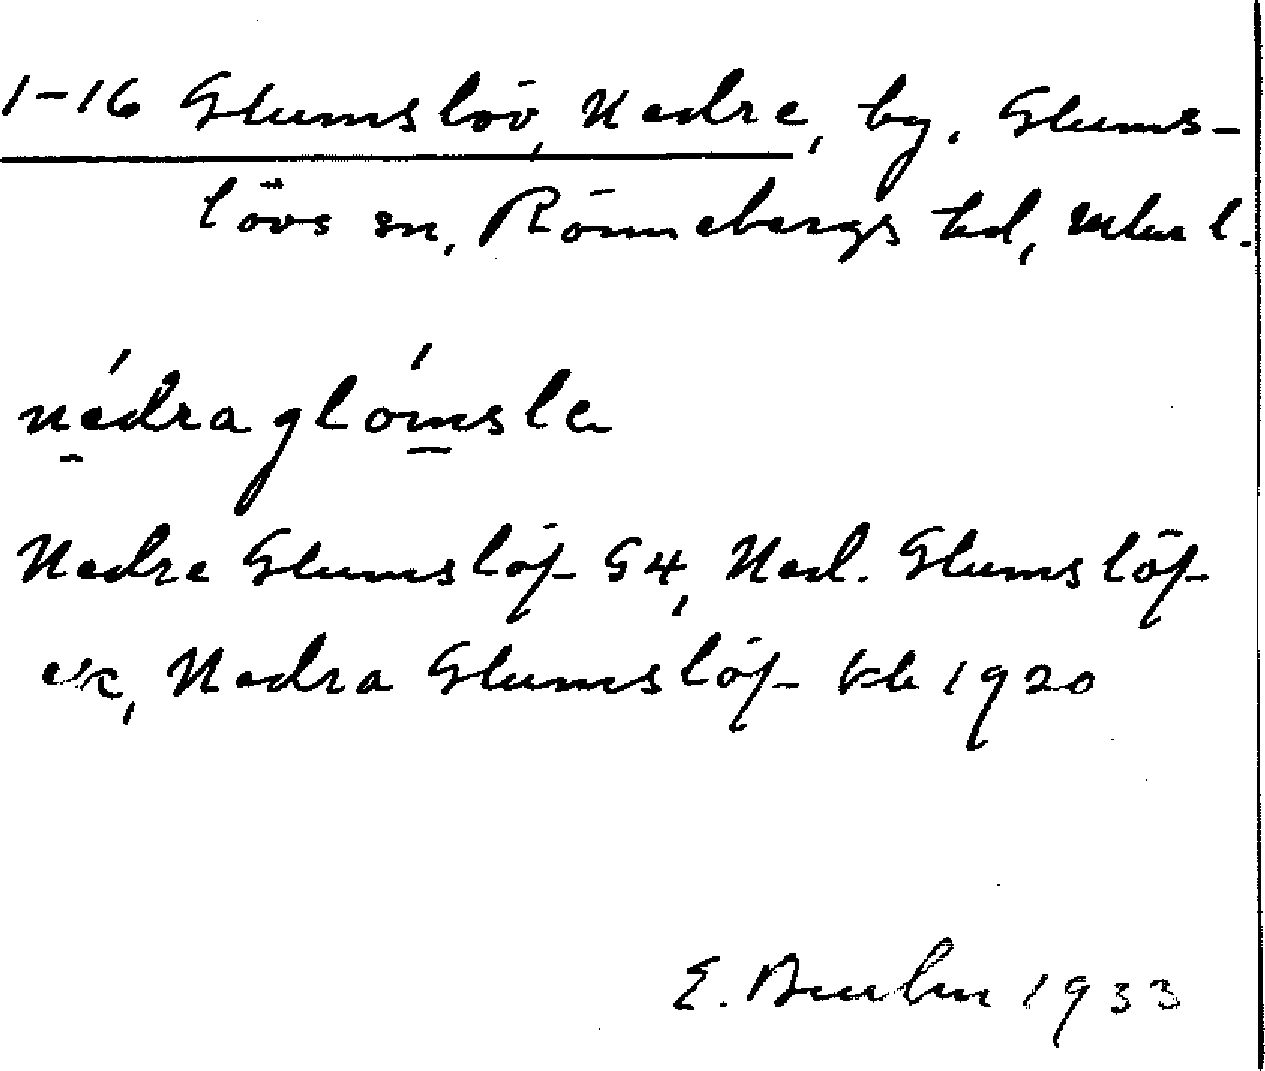 1-16 Glumslöv, Nedre, by. Glums-
lövs sn, Rönnebergs hd, Mlm l.
nédra glómsle
Nedre Glumslöf G4, Ned. Glumslöf
ek, Nedra Glumslöf kb 1920
E. 1933